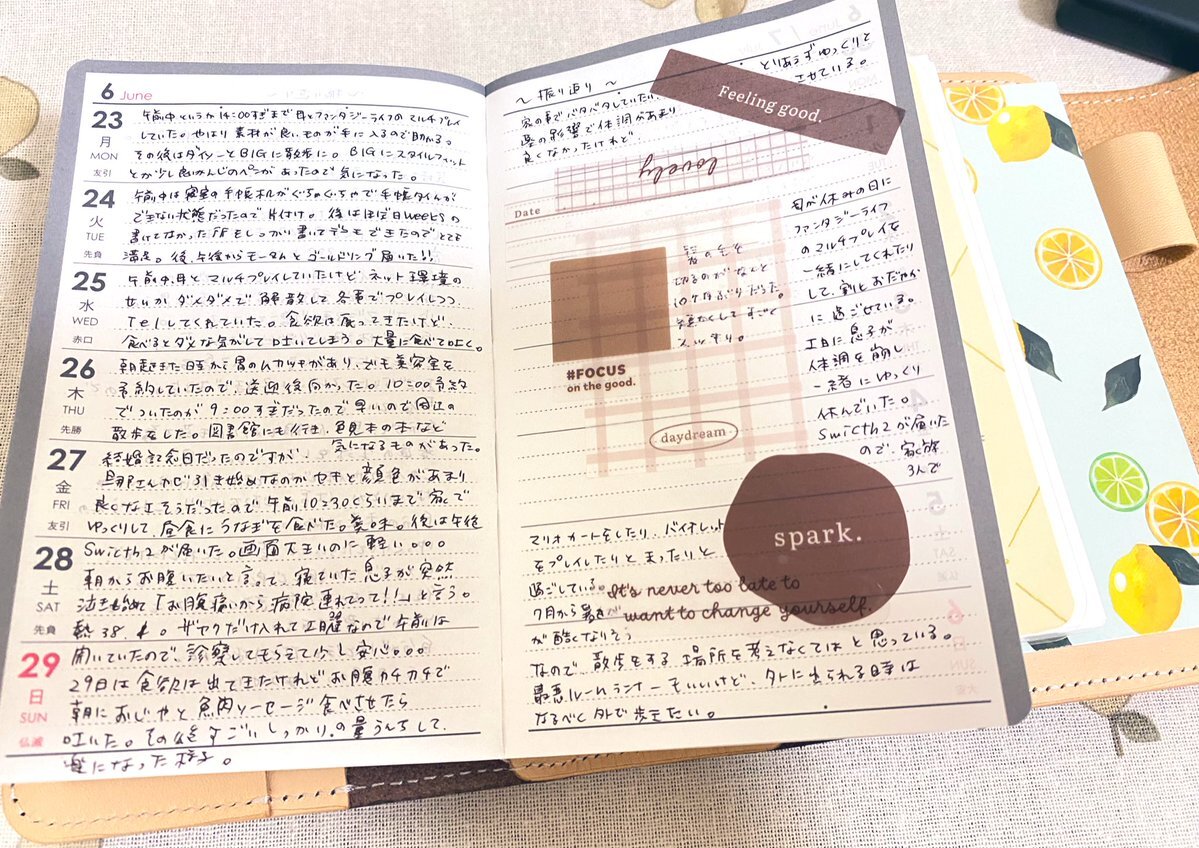 6 June
23
月
MON
友引
午前中というか14:00すぎまで母とファンタジーライフのマルチプレイ
していた。やはり素材が良いものが手に入るので助かる。
その後はダイソーとBIGに散歩に。BIGにスタイルフィット
とか少し良いかんじのペンがあったので気になった。
24
火
TUE
先負
午前中は寝室の手帳本用がぐちゃぐちゃで手帳タイムが
できない状態だったので片付け。後はほぼ日weeksの
書けてなかった所をしっかり書いてデコもできたのでとても
満足。後、午後からモータムとゴールドリング届いた!!
25
水
WED
赤口
午前中、母とマルチプレイしていたけどネット環境の
せいかダメダメで解散して各事でプレイしつつ
Telしてくれていた。食欲は戻ってきたけど、
食べるとダメな気がして吐いてしまう。大量に食べての良く。
26
木
THU
先勝
朝起きた時から胃のムカツキがあり、でも美容室を
予約していたので、送迎後向かった。10:00予約
でついたのが9:00すぎだったので早いので周辺の
散歩をした。図書館にも行き、色見本の本など
気になるものがあった。
27
金
FRI
友引
結婚記念日だったのですが、
旦那さんがひき始めなのかせきと顔色があまり
良くなさそうだったので午前10:30くらいまで家で
ゆっくりして、昼食にうなぎを食べた。美味。後は午後
Swicth2が届いた。画面大きいのに軽い。。。
28
土
SAT
先負
朝からお腹いたいと言って、寝ていた息子が突然
泣き始めて「お腹痛いから病院連れてって!!」と言う。
熱38.
ザヤクだけ入れて土曜なので午前は
開いていたので、診察してもらえて少し安心。。。
29
日
SUN
仏滅
29日は食欲は出てきたけれどお腹カチカチで
朝におじやと魚肉ソーセージ食べさせたら
吐いた。その後すごいしっかりの量うんちして、
楽になった様子。
〜振り返り〜
家の事でバタバタしていたり、
暑の影響で体調があまり
良くなかったけれど
とりあえずゆっくりと
させている。
Feeling good.
lovely
Date
髪の毛を
切るのがなんと
10ケ月ぶりだった。
短くしてすごく
スッキリ。
#FOCUS
on the good.
daydream
母が休みの日に
ファンタジーライフ
のマルチプレイを
一緒にしてくれたり
して、割とおだやか
に過ごせている。
土日に息子が
体調を崩し
一緒にゆっくり
休んでいた。
Swicth2が届いた
ので、家族
3人で
spark.
マリオカートをしたり、バイオレット
をプレイしたりとまったりと
過ごしている。
It's never too late to
want to change yourself.
7月から暑さ
が酷くなりそう
なので散歩をする場所を考えなくてはと思っている。
最悪ルームランナーもいいけど、外に出られる時は
なるべく外で歩きたい。